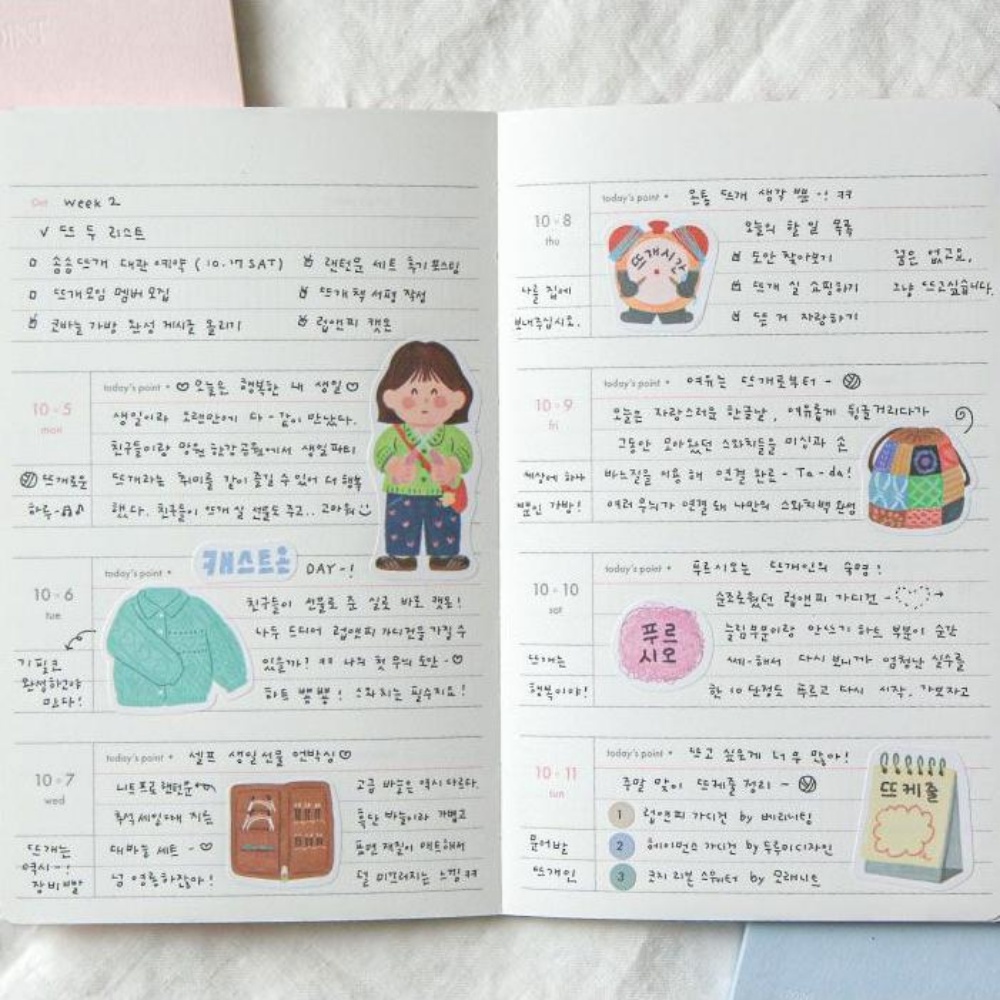 Oct week 2
✓ 뜨 두 리스트
송송뜨개 대관 예약 (10.17 SAT)
랜턴문 세트 후기 포스팅
뜨개모임 멤버 모집
뜨개책 서평 작성
코바늘 가방 완성 게시글 올리기
럽앤피 캣온
10 · 5
mon
뜨개로운
하루-
today's point • ♡ 오늘은 행복한 내 생일 ♡
생일이라 오랜만에 다-같이 만났다.
친구들이랑 망원 한강공원에서 생일파티
뜨개라는 취미를 같이 즐길 수 있어 더 행복
했다. 친구들이 뜨개 실 선물도 주고.. 고마워
10 · 6
tue
기필코
완성하고야
만다!
today's point • 캐스트온 DAY-!
친구들이 선물로 준 실로 바로 캣온!
나두 드디어 럽앤피 가디건을 가질 수
있을까? ㅋㅋ 나의 첫 무늬 도안-♡
하트 뿅뿅! 스와치는 필수지요!
10 · 7
wed
뜨개는
역시-!
장비빨
today's point • 셀프 생일선물 언박싱♡
니트프로 랜턴문
추석 세일때 지른
대바늘 세트-♡
넘 영롱하잖아!
고급 바늘은 역시 다르다.
흑단 바늘이라 가볍고
표면 재질이 매트해서
덜 미끄러지는 느낌 ㅋㅋ
10 · 8
thu
나를 집에
보내주십시오.
today's point • 온통 뜨개 생각 뿐-! ㅋㅋ
뜨개시간
오늘의 할 일 목록
도안 찾아보기
뜨개 실 쇼핑하기
뜬 거 자랑하기
꿈은 없고요,
그냥 뜨고싶습니다.
10 · 9
fri
세상에 하나
뿐인 가방!
today's point • 여유는 뜨개로부터-
오늘은 자랑스러운 한글날, 여유롭게 뒹굴거리다가
그동안 모아왔던 스와치들을 미싱과 손
바느질을 이용해 연결 완료- Ta-da!
여러 무늬가 연결돼 나만의 스와치백 완성
10 · 10
sat
뜨개는
행복이야!
today's point • 푸르시오는 뜨개인의 숙명!
푸르
시오
순조로웠던 럽앤피 가디건-
늘림부분이랑 안쓰기 하트 부분이 순간
쎄-해서 다시 보니까 엄청난 실수를
한 10단정도 푸르고 다시 시작. 가보자고
10 · 11
sun
문어발
뜨개인
today's point • 뜨고 싶은게 너무 많아!
주말 맞이 뜨케줄 정리-
1 럽앤피 가디건 by 베리니팅
2 헤이먼스 가디건 by 두루미디자인
3 코지 리본 스웨터 by 모래니트
뜨케줄